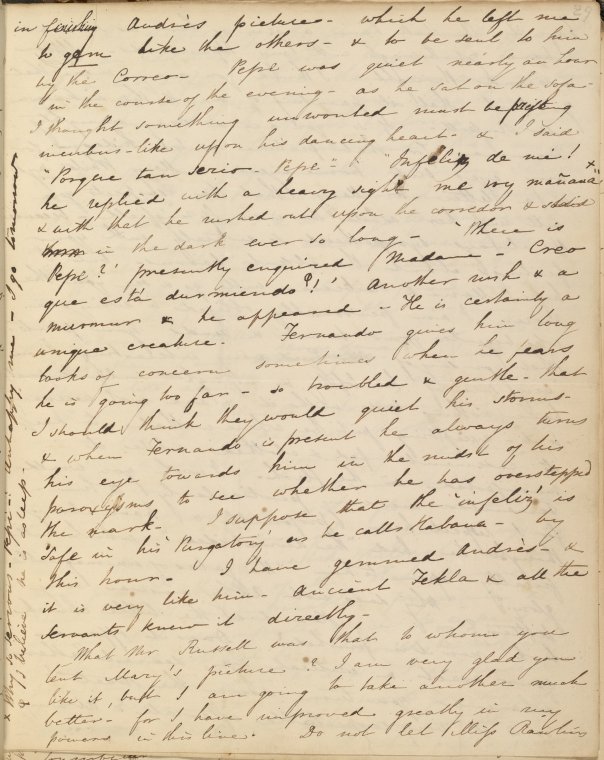 in finishing Andrès picture - which he left me
to gem like the others - & to be sent to him
by the Correo - Pepè was quiet nearly an hour
in the course of the evening - as he sat on the sofa -
I thought something unwonted must be pressing
incubus-like upon his dancing heart - & I said
"Porque tan serio - Pepè" - "Infeliz de mé!
he replied with a heavy sigh me voy mañana" x
& with that he rushed out upon the corredor &
in the dark ever so long - 'Where is
Pepè?' presently enquired Madame - 'Creo
que està durmiendo?!' Another rush & a
murmur & he appeared - He is certainly a
unique creature. Fernando gives him long
looks of concern sometimes when he fears
he is going too far - so troubled & gentle - that
I should think they would quiet his storms -
& when Fernando is present he always turns
his eye towards him in the midst of his
paroxysms to see whether he has overstepped
the mark - I suppose that the 'infeliz' is
safe in his 'Purgatory' as he calls Habana - by
this hour - I have gemmed Andrès - &
it is very like him - Ancient Tekla & all the
servants knew it directly -
What Mr Russell was that to whom you
lent Mary's picture? I am very glad you
like it, but I am going to take another much
better - for I have improved greatly in my
powers in this line. Do not let Miss Rawlins
x Why so serious - Pepè - Unhappy me - I go tomorrow
& I believe he is asleep -